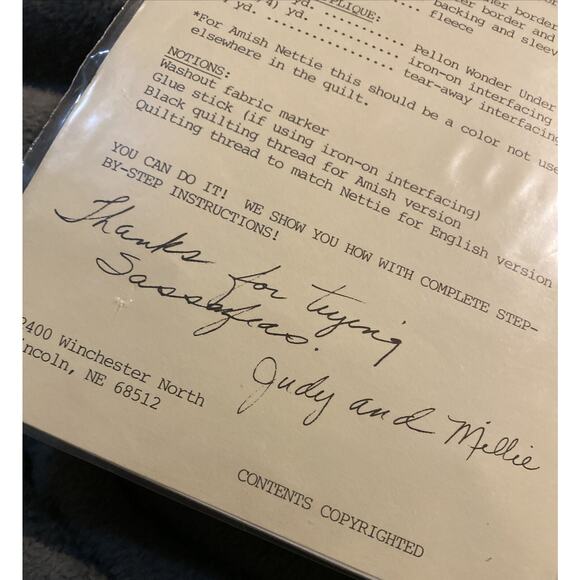 er border
er border and
backing and sleev
fleece
PLIQUE:
yd.
/4) yd.
yd. Pellon Wonder Under
iron-on interfacing
tear-away interfacing
*For Amish Nettie this should be a color not use
elsewhere in the quilt.
NOTIONS:
Washout fabric marker
Glue stick (if using iron-on interfacing)
Black quilting thread for Amish version
Quilting thread to match Nettie for English version
YOU CAN DO IT! WE SHOW YOU HOW WITH COMPLETE STEP-
BY-STEP INSTRUCTIONS!
Thanks for trying
Sassafras.
Judy and Millie
2400 Winchester North
incoln, NE 68512
CONTENTS COPYRIGHTED